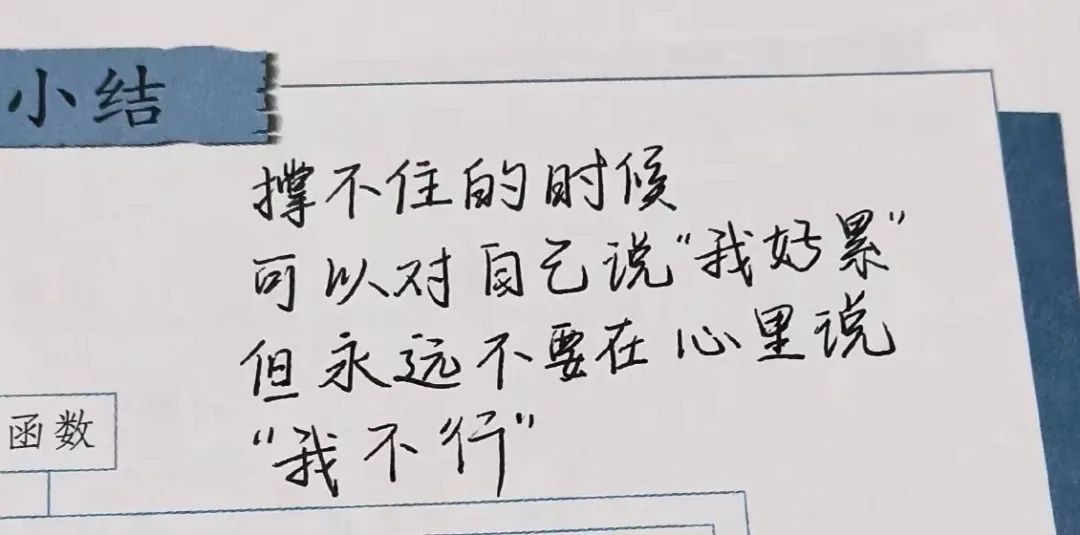 小结
撑不住的时候
可以对自己说“我好累”
但永远不要在心里说
“我不行”
函数